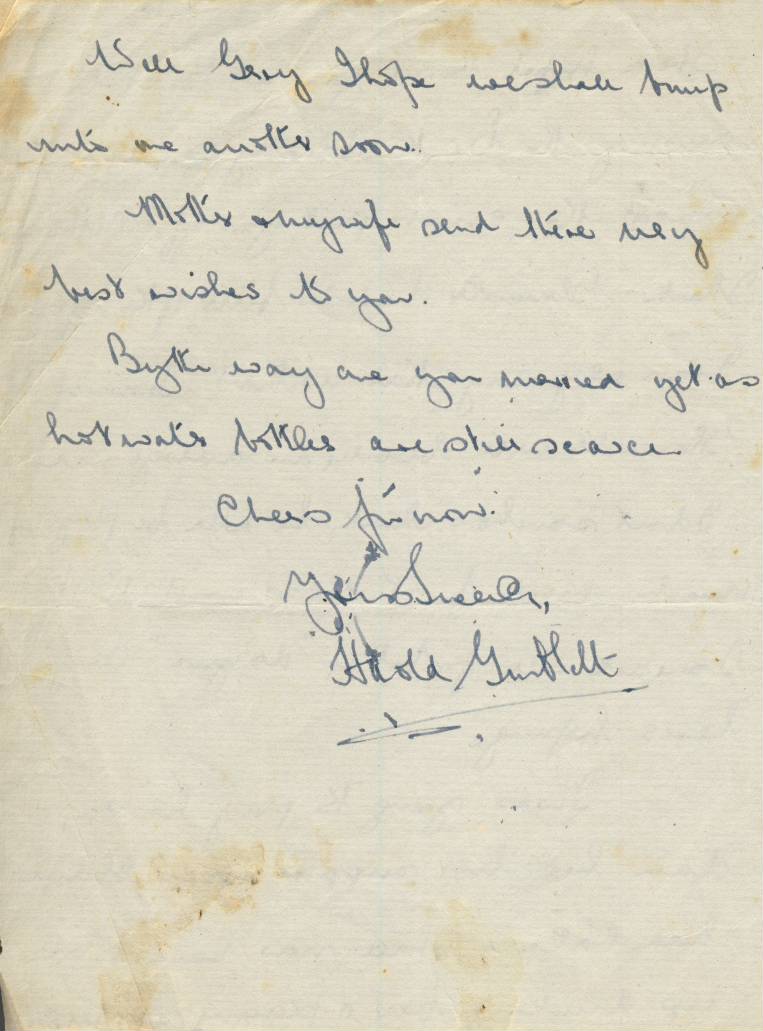 Well Gerry I hope we shall bump
into one another soon.
Mother & my wife send there very
best wishes to you.
By the way are you married yet as
hot water bottles are still scarce
Cheers for now.
Yours Sincerely,
Harold Gimblett